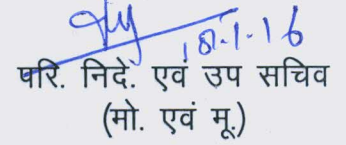 18.1.16
परि. निदे. एवं उप सचिव
(मो. एवं मू.)